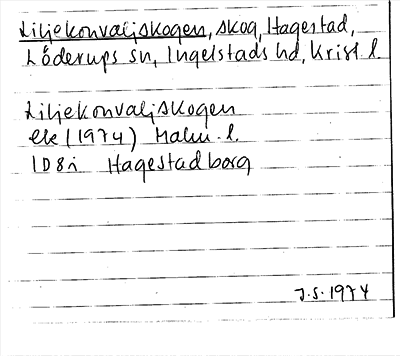 Liljekonvaljskogen, skog, Hagestad,
Löderups sn, Ingelstads hd, Krist l.
Liljekonvaljskogen
ek (1974) Malm. l.
1D8i Hagestadborg
J.S. 1974